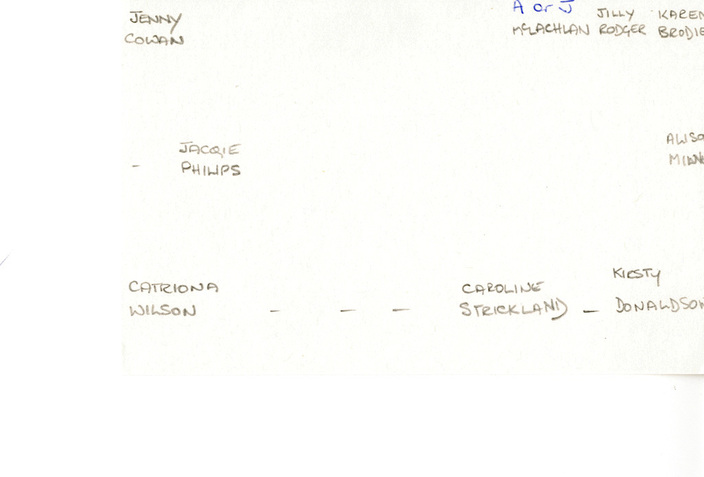 JENNY
COWAN
A or J
McLACHLAN
JILLY
RODGER
KAREN
BRODIE
-
JACQIE
PHILIPS
CATRIONA
WILSON
-
-
-
CAROLINE
STRICKLAND
-
KIRSTY
DONALDSON